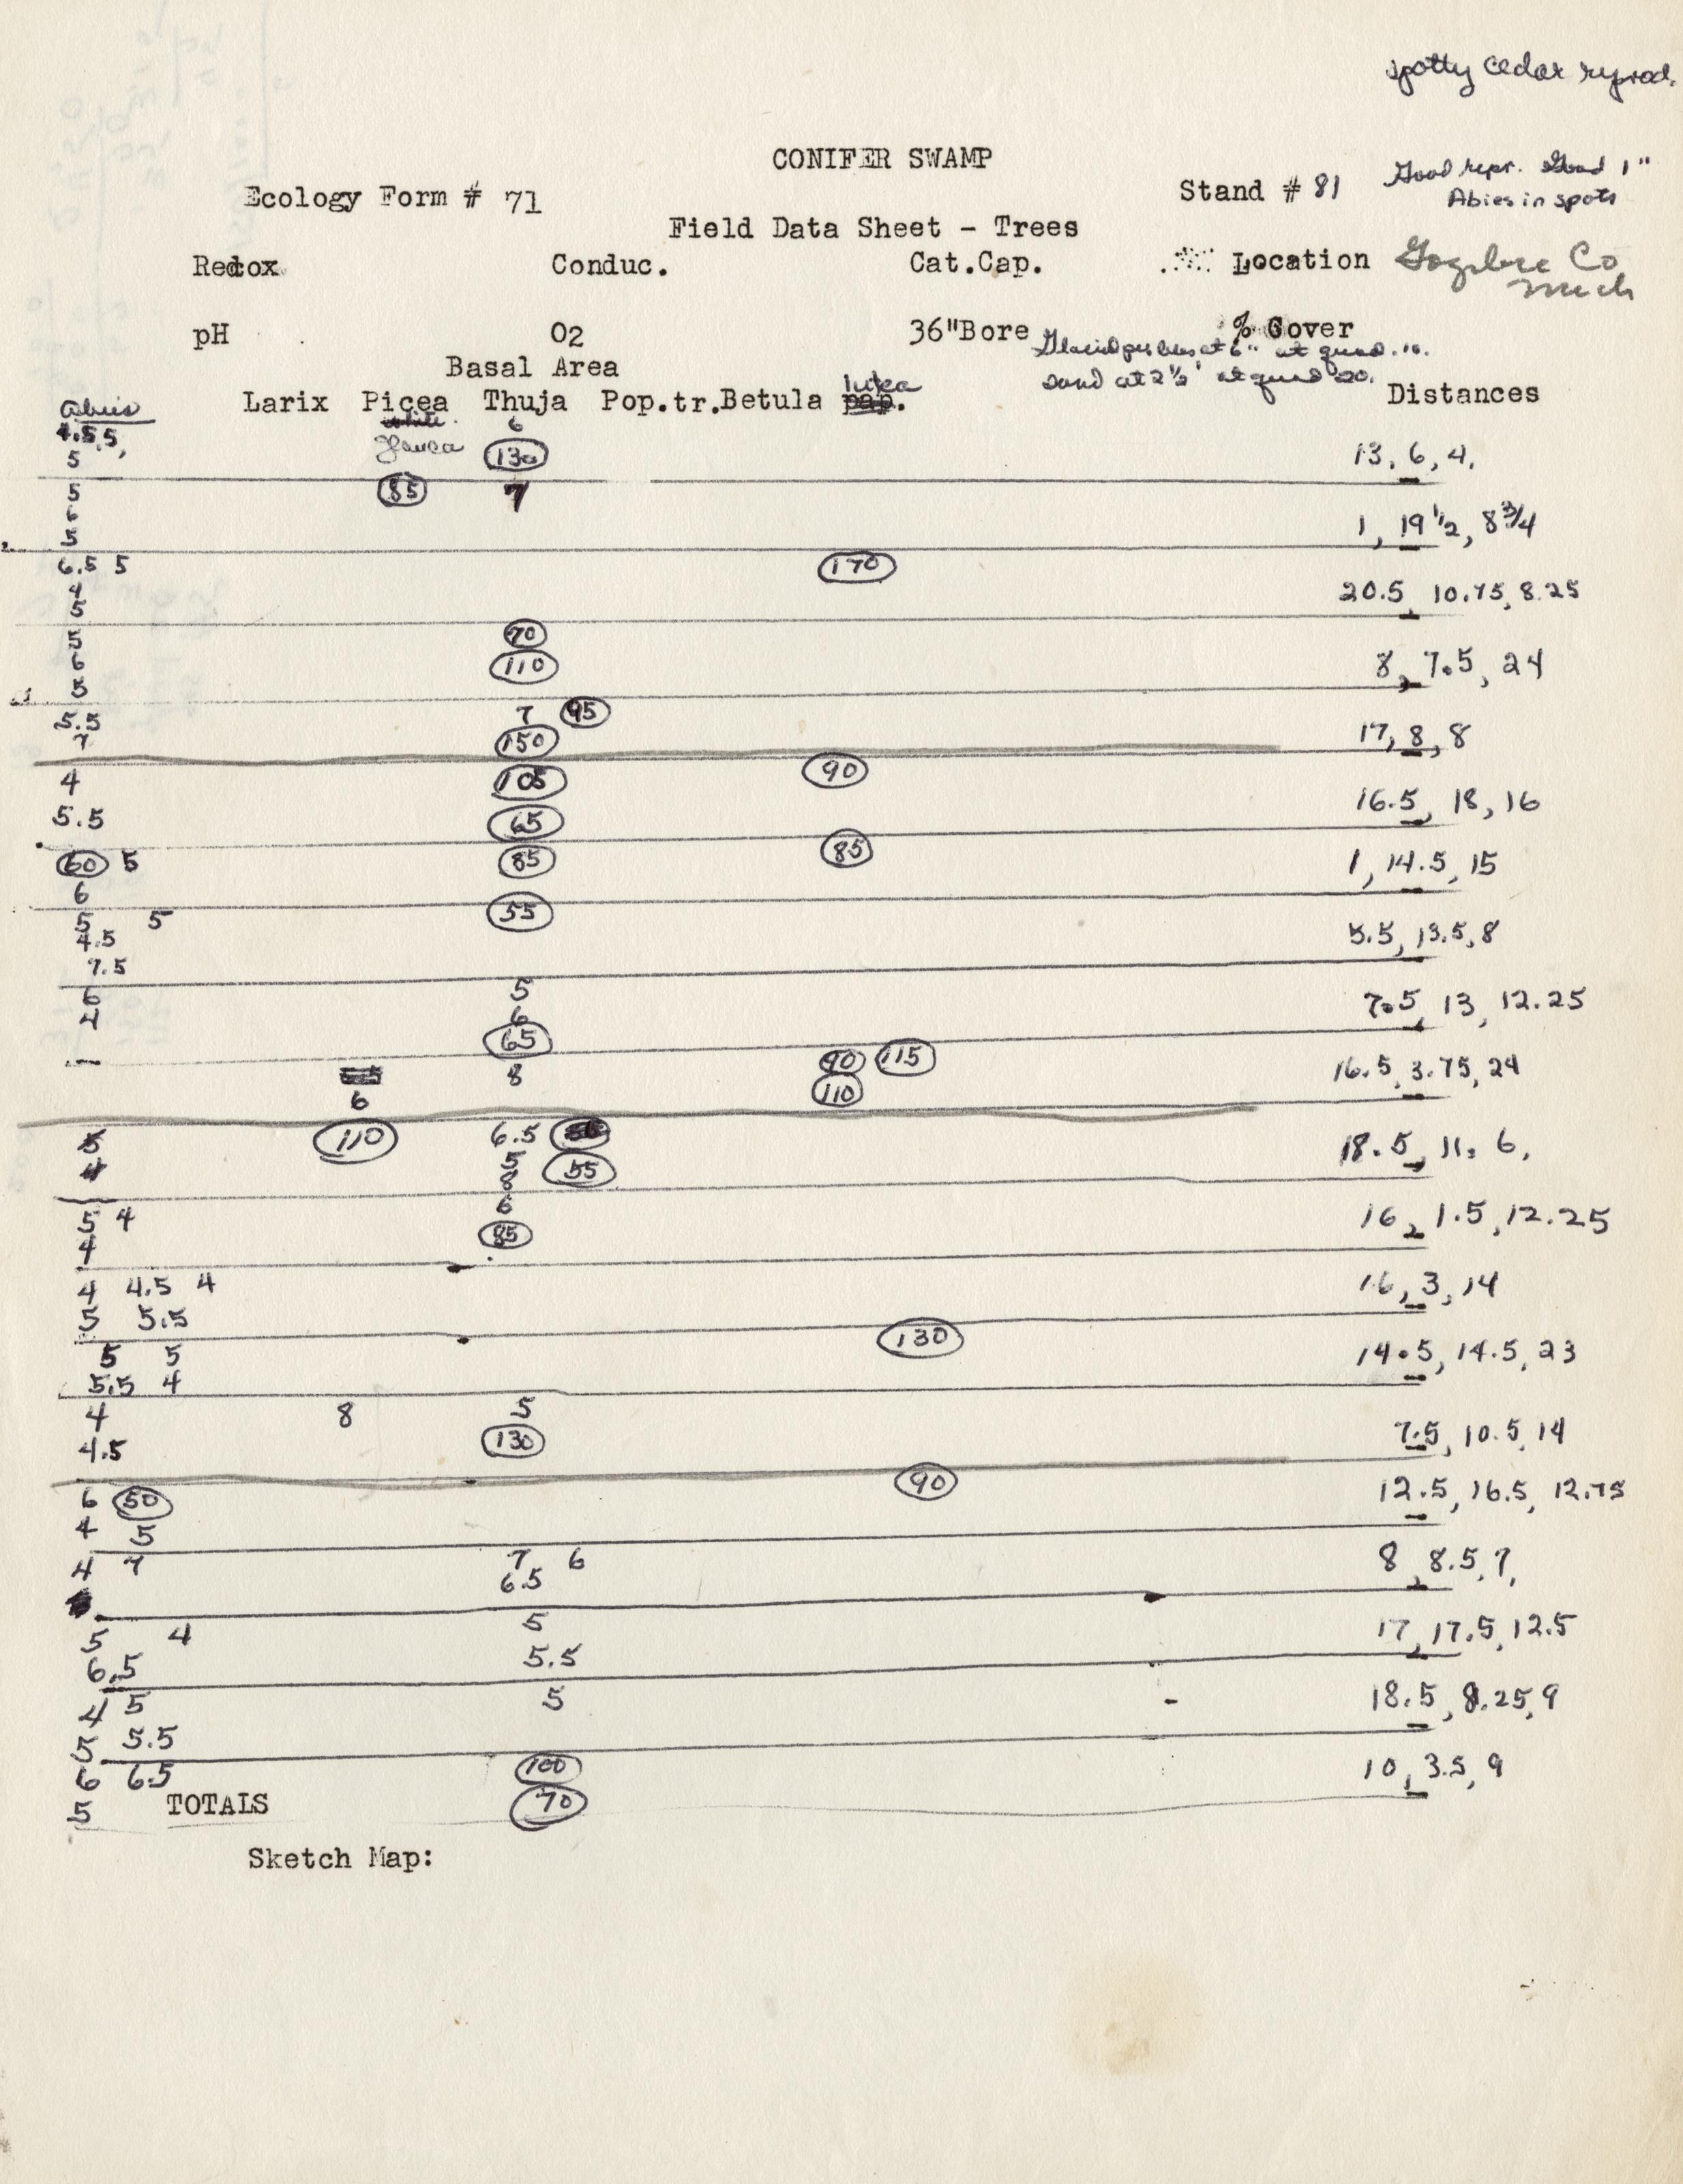 spotty cedar reprod.
CONIFER SWAMP
Good repr. Good 1"
Ecology Form # 71
Stand # 81
Abies in spots
Field Data Sheet - Trees
Redox Conduc. Cat.Cap. Location Gogebic Co
Mich
pH O2 36"Bore % Cover
Glacial pebbles at 6" at quad. 10.
Basal Area
sand at 2 1/2' at quad 20.
lutea
Abies Larix Picea Thuja Pop.tr. Betula pap. Distances
white
4.5, 5, 6
5 glauca 130 13, 6, 4,
5 85 7
6
5 1, 19 1/2, 8 3/4
6.5 5 170
4 20.5, 10.75, 8.25
5
5 70
6 110 8, 7.5, 24
5
5.5 7 95
7 150 17, 8, 8
4 105 90
5.5 65 16.5, 18, 16
60 5 85 85 1, 14.5, 15
6
5 5 55
4.5 5.5, 13.5, 8
7.5
6 5
4 6 7.5, 13, 12.25
65
- 8 90 115 16.5, 3.75, 24
6 110
5 110 6.5
4 5 55 18.5, 11. 6,
8
5 4 6 16, 1.5, 12.25
4 85
4 4.5 4 16, 3, 14
5 5.5
5 5 130 14.5, 14.5, 23
5.5 4
4 8 5
4.5 130 7.5, 10.5, 14
6 50 90 12.5, 16.5, 12.75
4 5
4 7 7 6 8, 8.5, 7,
6.5
5 4 5 17, 17.5, 12.5
6.5 5.5
4 5 5 - 18.5, 8.25, 9
5 5.5
6 6.5 100 10, 3.5, 9
5 TOTALS 70
Sketch Map: